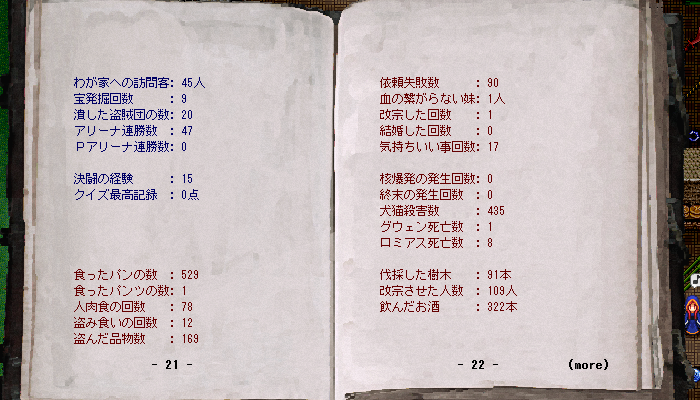 わが家への訪問客: 45人
宝発掘回数 : 9
潰した盗賊団の数: 20
アリーナ連勝数 : 47
Ｐアリーナ連勝数: 0
決闘の経験 : 15
クイズ最高記録 : 0点
食ったパンの数 : 529
食ったパンツの数: 1
人肉食の回数 : 78
盗み食いの回数 : 12
盗んだ品物数 : 169
- 21 -
依頼失敗数 : 90
血の繋がらない妹: 1人
改宗した回数 : 1
結婚した回数 : 0
気持ちいい事回数: 17
核爆発の発生回数: 0
終末の発生回数 : 0
犬猫殺害数 : 435
グウェン死亡数 : 1
ロミアス死亡数 : 8
伐採した樹木 : 91本
改宗させた人数 : 109人
飲んだお酒 : 322本
- 22 -
(more)